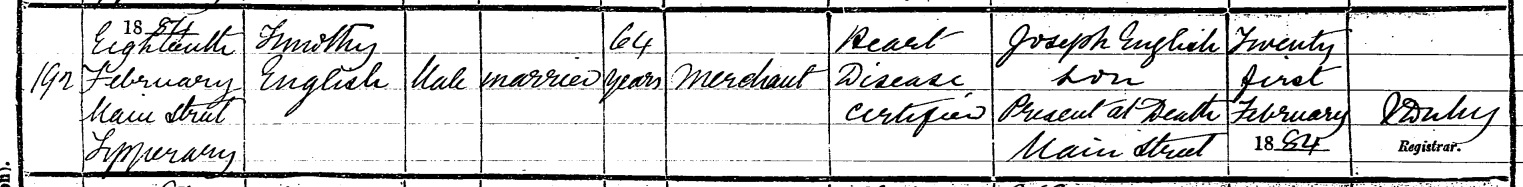 192
1884
Eighteenth
February
Main Street
Tipperary
Timothy
English
Male
married
64
years
Merchant
Heart
Disease
Certified
Joseph English
Son
Present at Death
Main Street
Twenty
first
February
1884
Registrar.